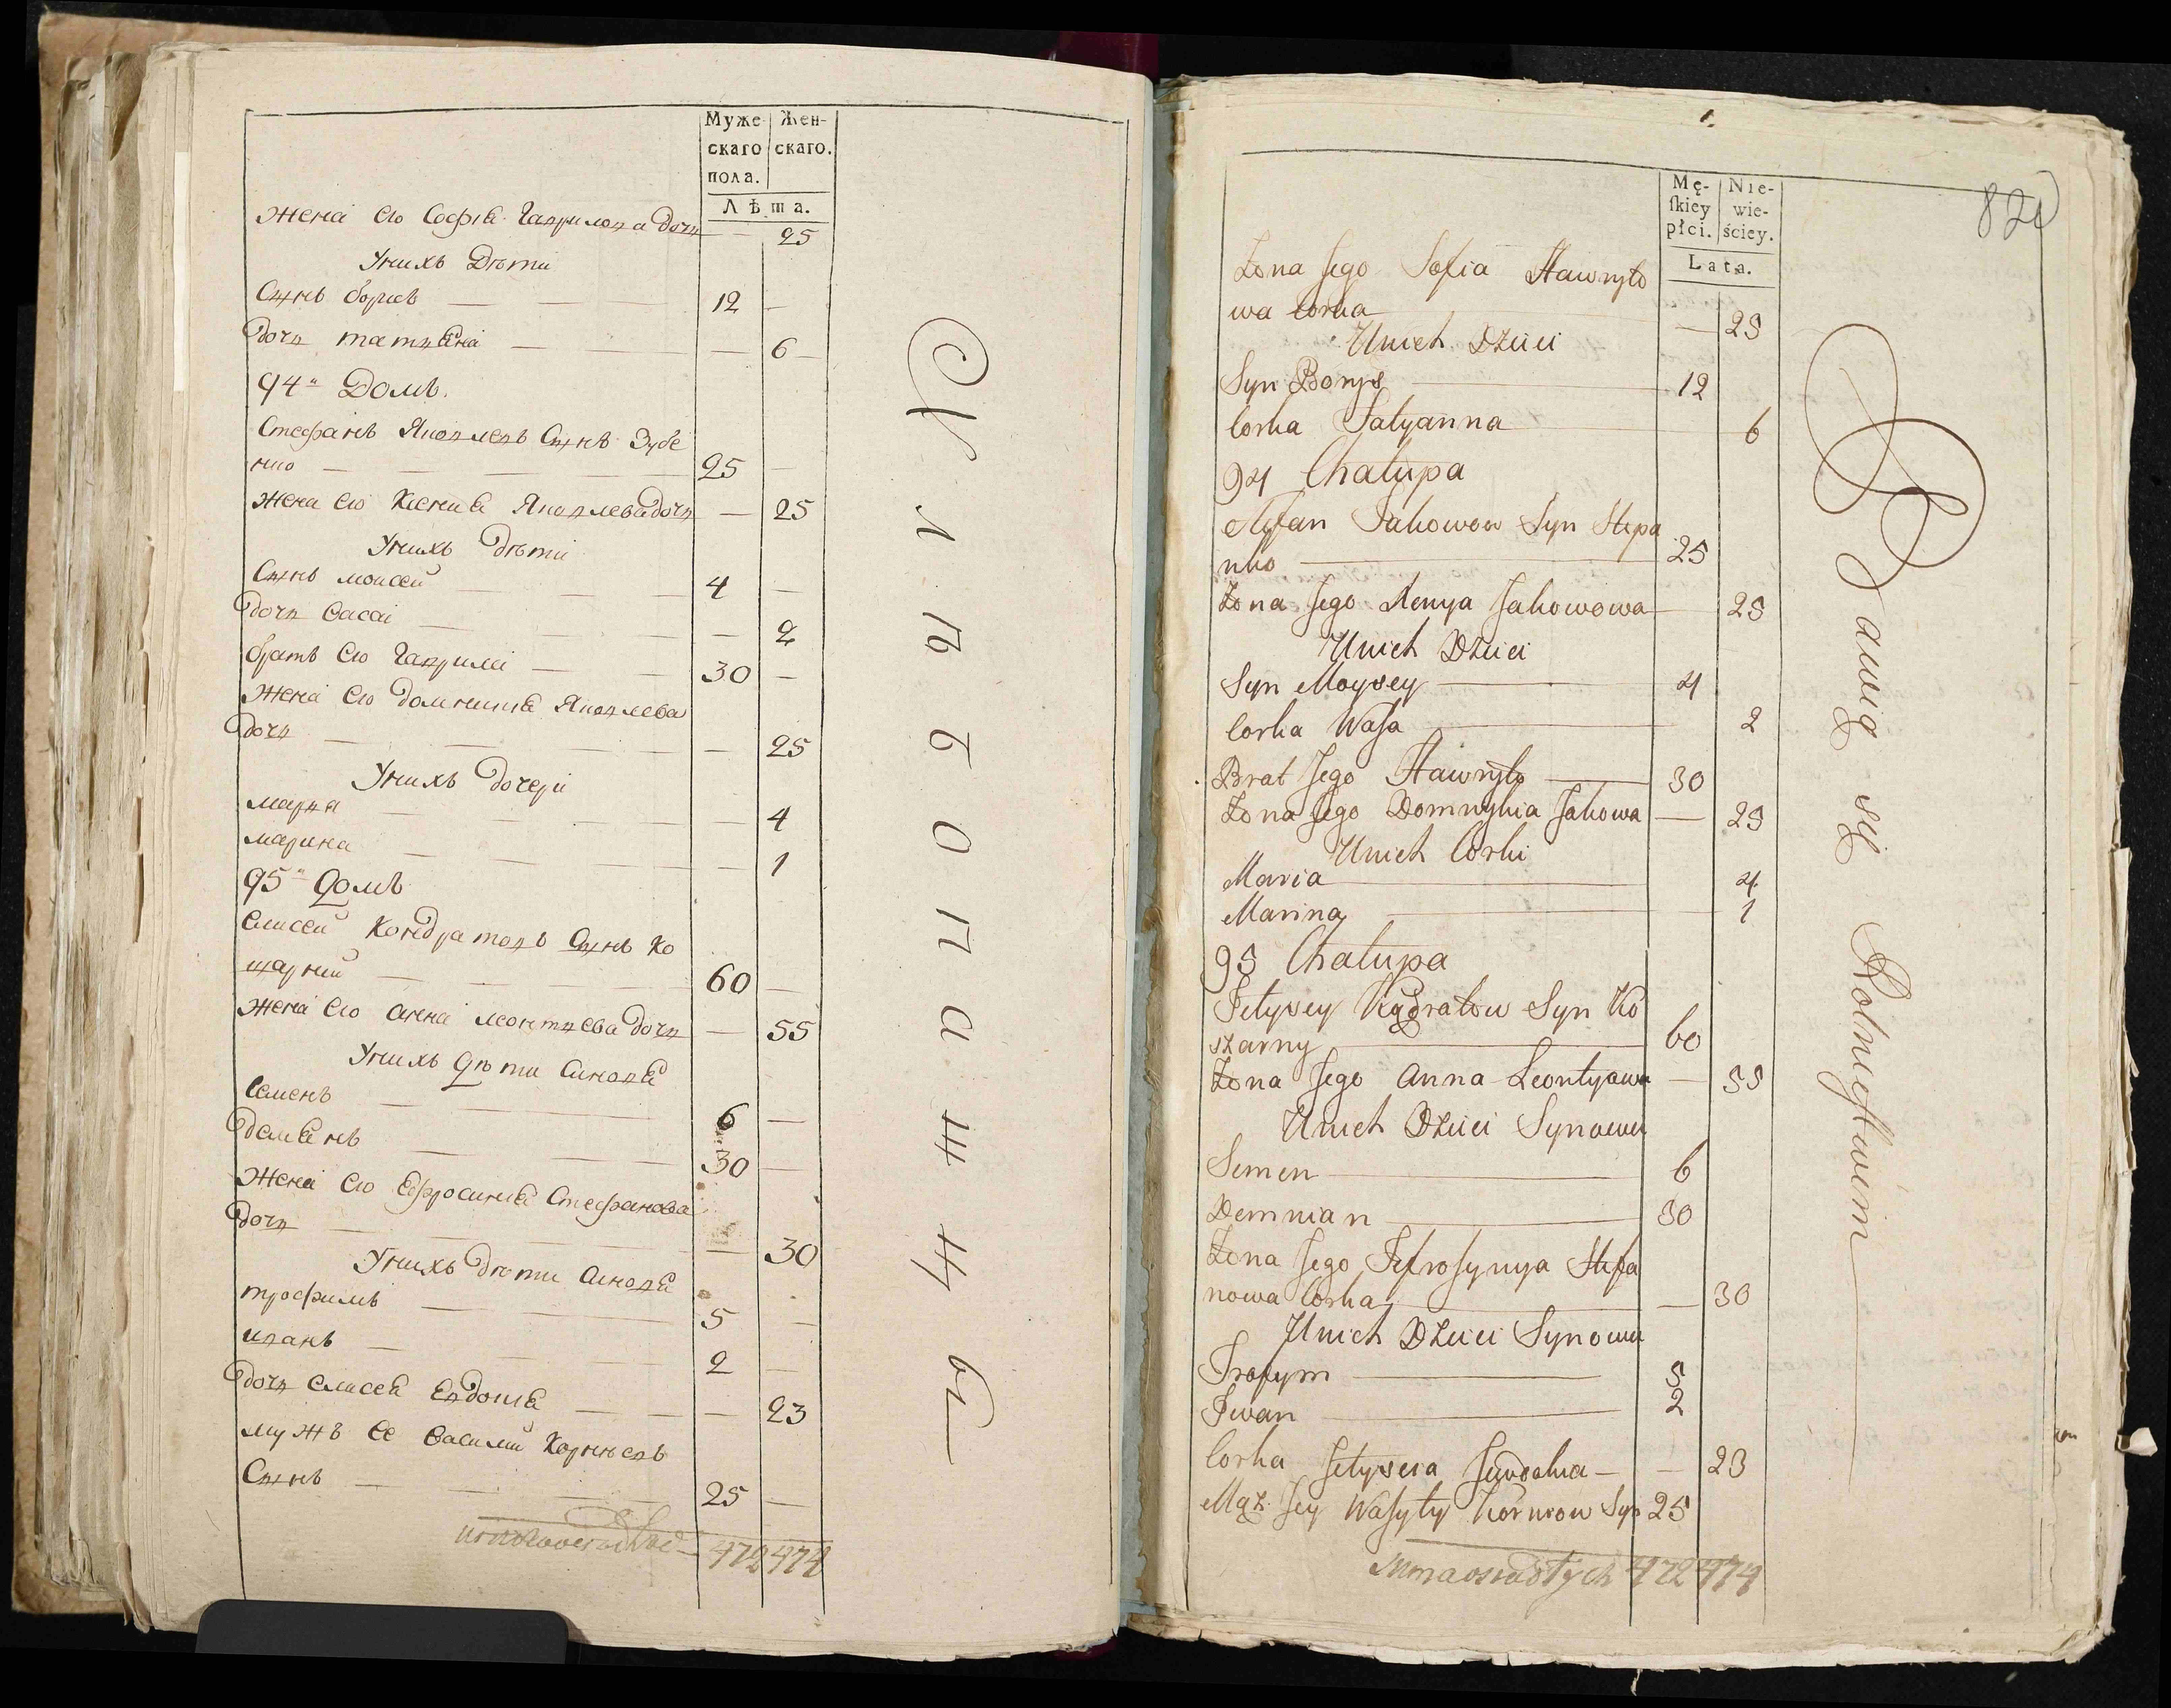 Муже-
скаго
пола.
Жен-
скаго.
Лѣта.
Жена его Софiя Гаврилова дочь — 25
У нихъ Дѣти
Сынъ борисъ — 12 —
дочь татьяна — — 6
94" Домъ.
Стефанъ Яковлевъ Сынъ Зубе
нко — 25 —
Жена его Ксения Яковлева дочь — 25
У нихъ дѣти
Сынъ моисей — 4 —
дочь васса — — 2
братъ его гаврила — 30 —
Жена его домникия Яковлева
дочь — — 25
У нихъ дочери
марья — — 4
марина — — 1
95" домъ
елисей Кондратовъ Сынъ Ко
шарний — 60 —
Жена его анна леонтьева дочь — 55
У нихъ дѣти Синовя
Семенъ — 6 —
демянъ — 30 —
Жена его Ефросиния Стефанова
дочь — — 30
У нихъ дѣти Синовя
трофимъ — 5 —
иванъ — 2 —
дочь елисея Евдокия — — 23
мужъ ее василий Корнѣевъ
Сынъ — 25 —
472 474
Хлѣбопашц
82
Mę-
ſkiey
płci.
Nie-
wie-
ściey.
Lata.
Zona Jego Sofia Hawryło
wa Corka — 25
Unich Dzieci
Syn Borys — 12
Corka Tatyanna — 6
94 Chałupa
Stefan Jakowow Syn Stepa
nko — 25
Zona Jego Xenya Jakowowa — 25
Unich Dzieci
Syn Moysey — 4
Corka Wasa — 2
Brat Jego Hawryło — 30
Zona Jego Domnykia Jakowa — 25
Unich Corki
Maria — 4
Marina — 1
95 Chałupa
Jełysey Kądratow Syn Ko
szarny — 60
Zona Jego Anna Leontyowa — 55
Unich Dzieci Synowie
Semen — 6
Demnian — 30
Zona Jego Jefrosynya Stefa
nowa Corka — 30
Unich Dzieci Synowie
Trofym — 5
Iwan — 2
Corka Jełyseia Jewdokia — — 23
Mąż Jey Wasyły Kornіow Syn 25
Summa osiadłych 472 474
Bawią się Rolnictwem